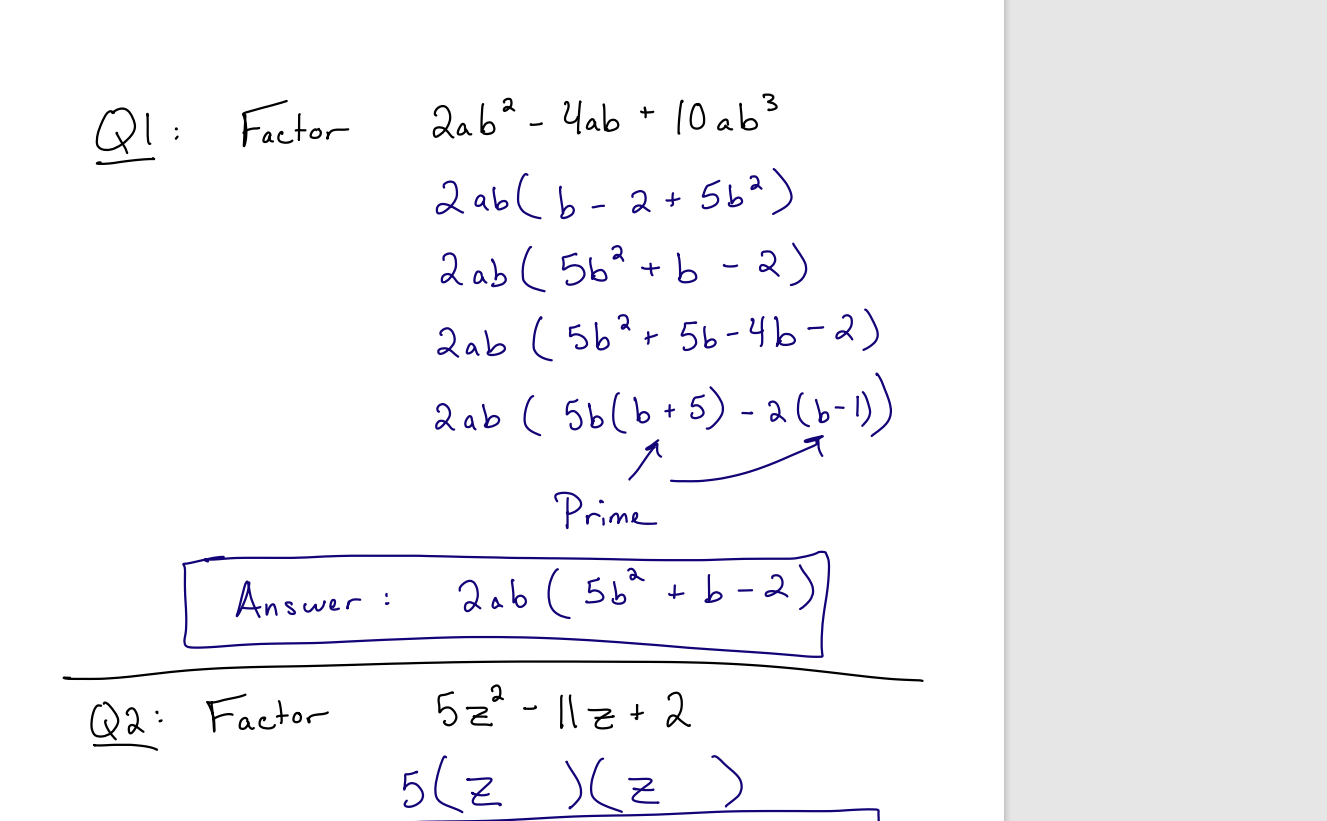 Q1: Factor 2ab² - 4ab + 10ab³
2ab( b - 2 + 5b²)
2ab( 5b² + b - 2)
2ab ( 5b² + 5b - 4b - 2)
2ab ( 5b(b + 5) - 2(b-1))
Prime
Answer: 2ab ( 5b² + b - 2)
Q2: Factor 5z² - 11z + 2
5(z )(z )